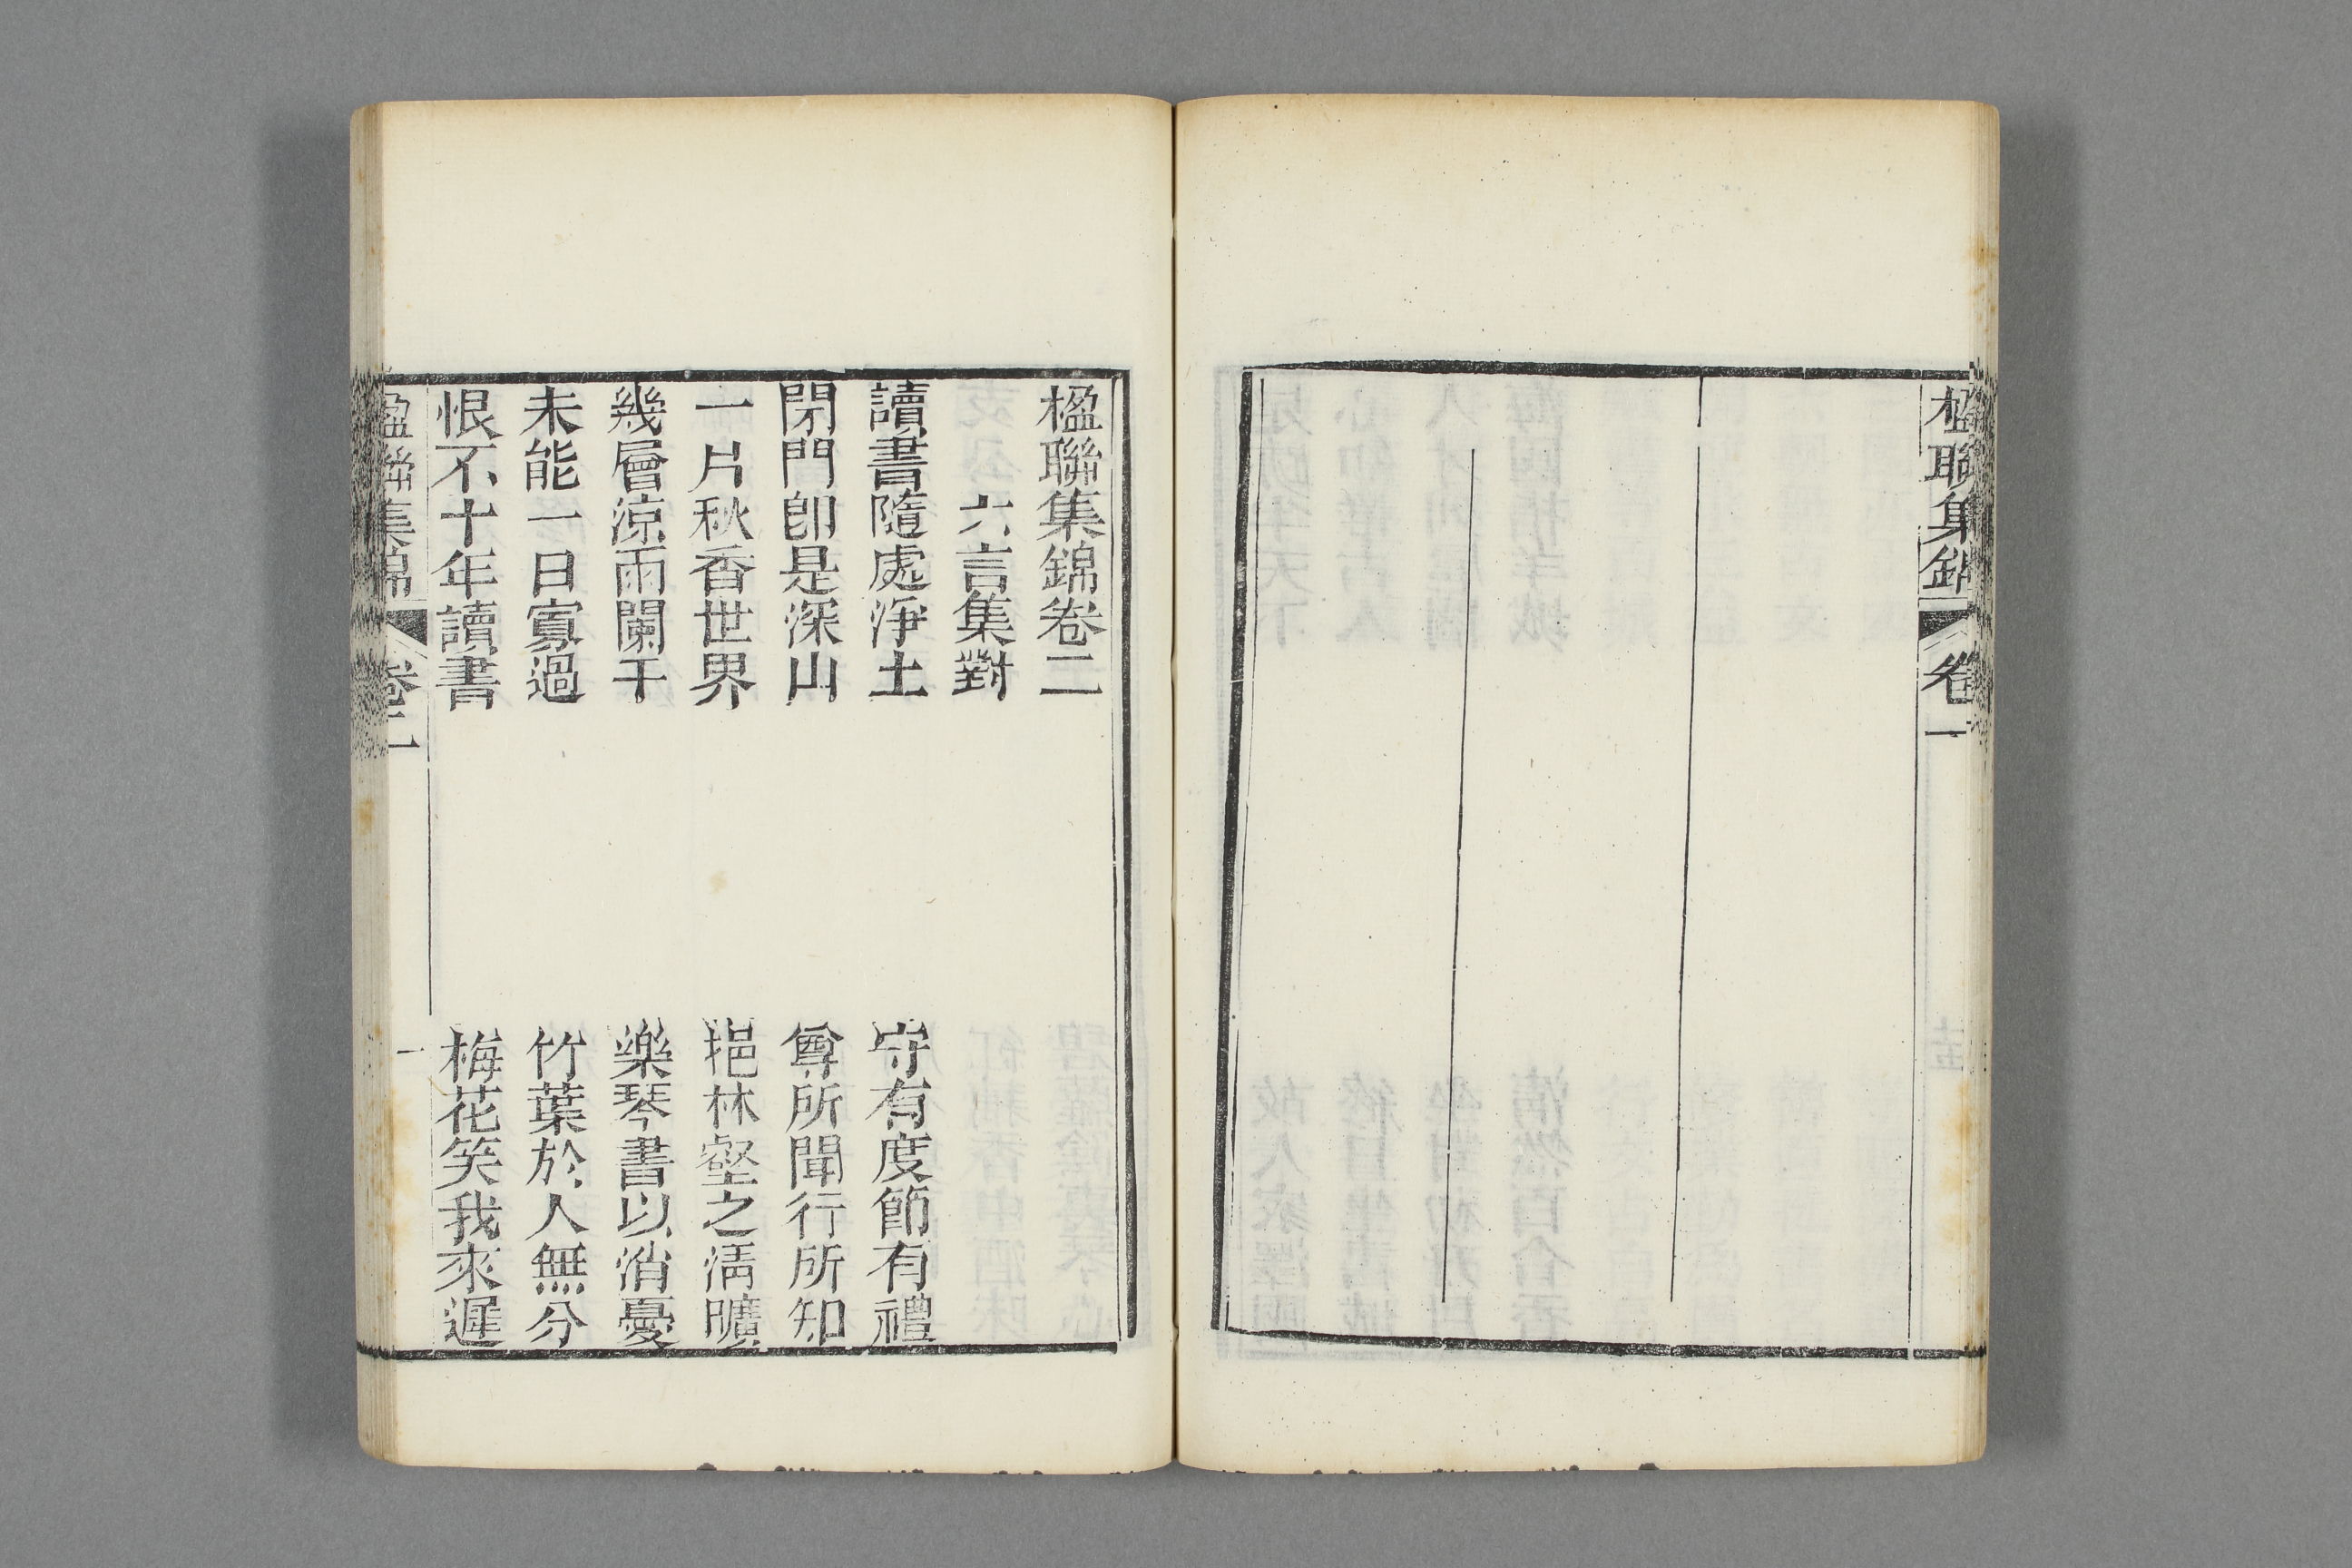 楹聯集錦
卷一
楹聯集錦卷二
六言集對
讀書隨處淨土
守有度節有禮
閉門卽是深山
尊所聞行所知
一片秋香世界
挹林壑之淸曠
幾層涼雨闌干
樂琴書以消憂
未能一日寡過
竹葉於人無分
恨不十年讀書
梅花笑我來遲
楹聯集錦
卷二
一